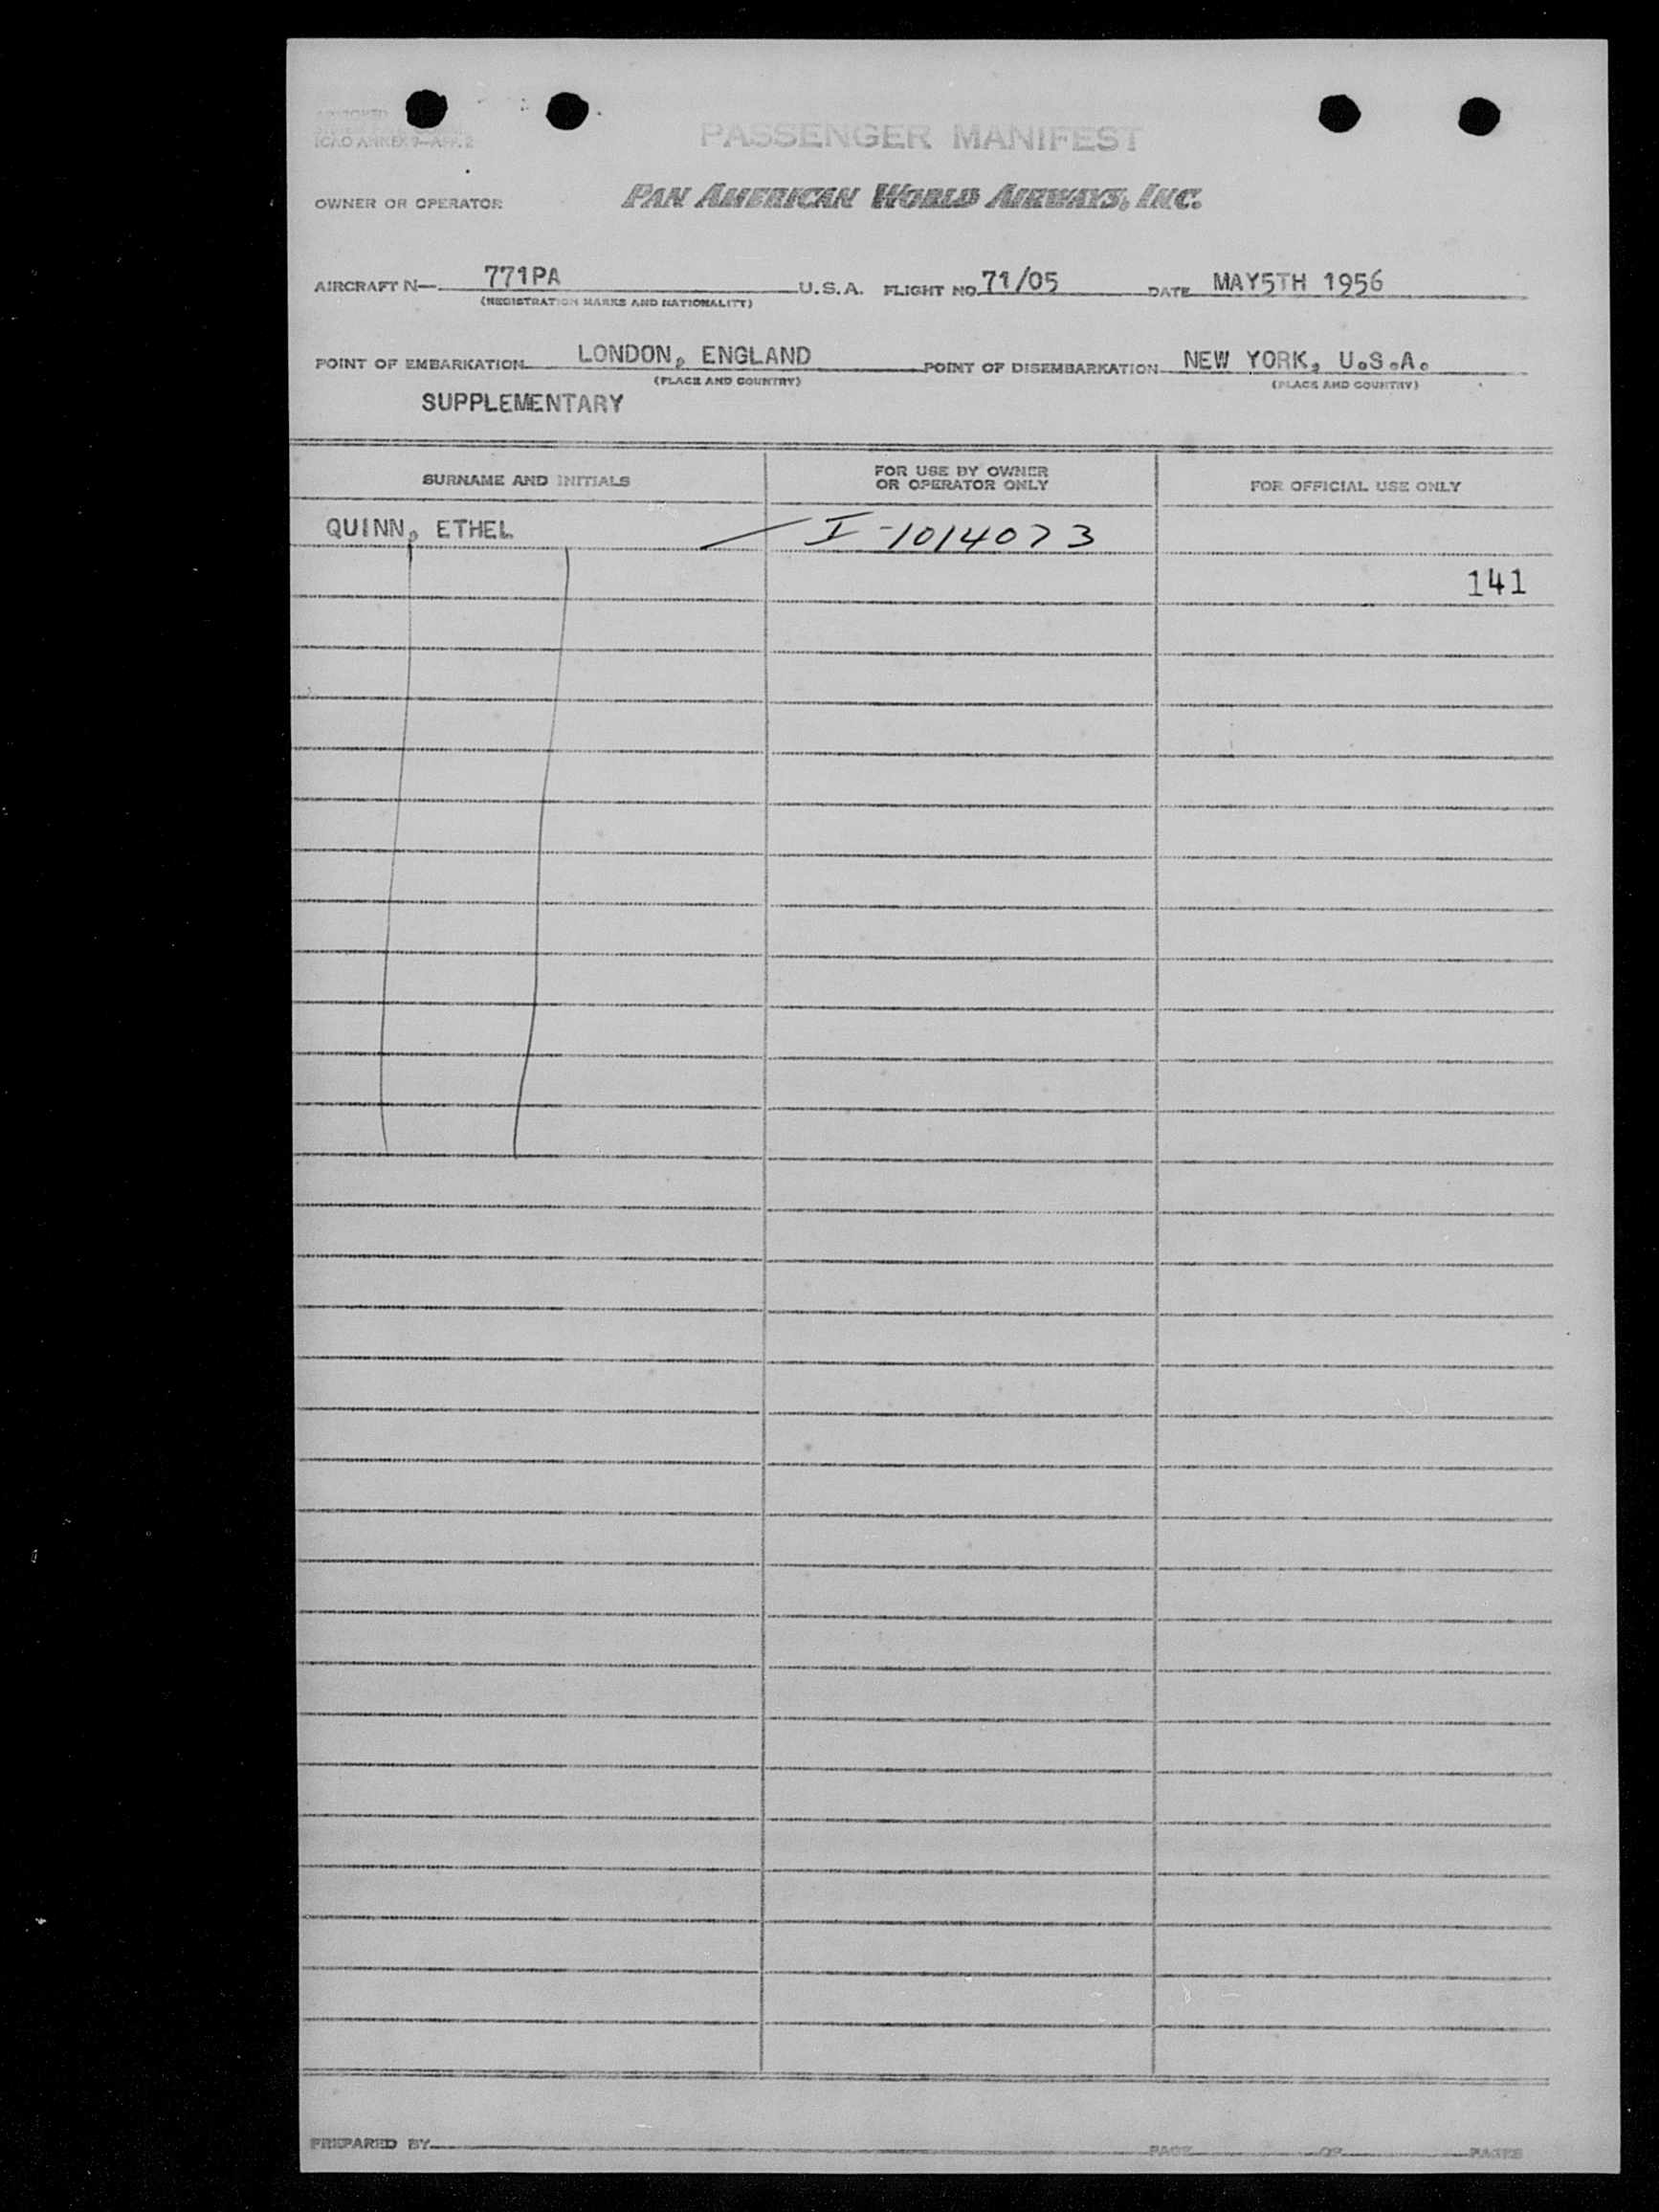 ICAO ANNEX 9—APP. 2
PASSENGER MANIFEST
OWNER OR OPERATOR PAN AMERICAN WORLD AIRWAYS, INC.
AIRCRAFT N— 771PA U.S.A. FLIGHT NO. 71/05 DATE MAY5TH 1956
(REGISTRATION MARKS AND NATIONALITY)
POINT OF EMBARKATION LONDON, ENGLAND POINT OF DISEMBARKATION NEW YORK, U.S.A.
(PLACE AND COUNTRY) (PLACE AND COUNTRY)
SUPPLEMENTARY
SURNAME AND INITIALS FOR USE BY OWNER OR OPERATOR ONLY FOR OFFICIAL USE ONLY
QUINN, ETHEL I-1014073
141
PREPARED BY PAGE OF PAGES